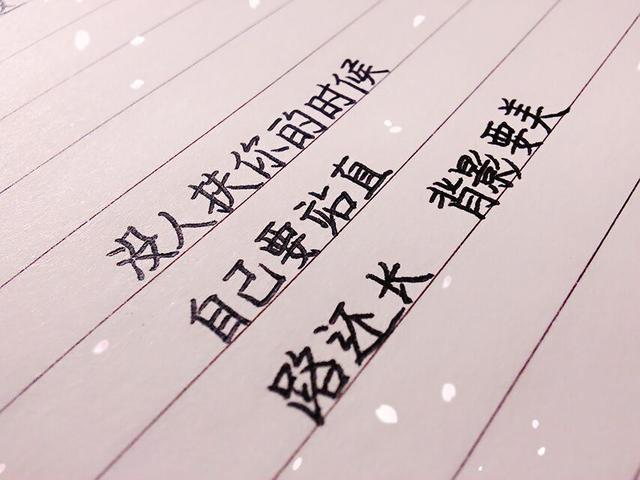 没人扶你的时候
自己要站直
路还长 背影要美